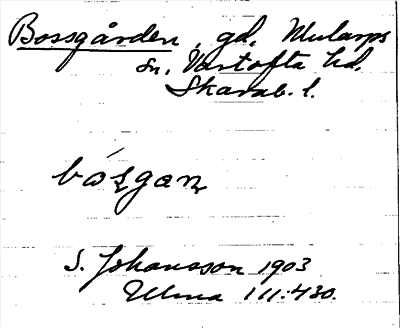 Bossgården, gd, Mularps
sn, Vartofta hd.
Skarab. l.
S. Johansson 1903
Ulma 111:430.